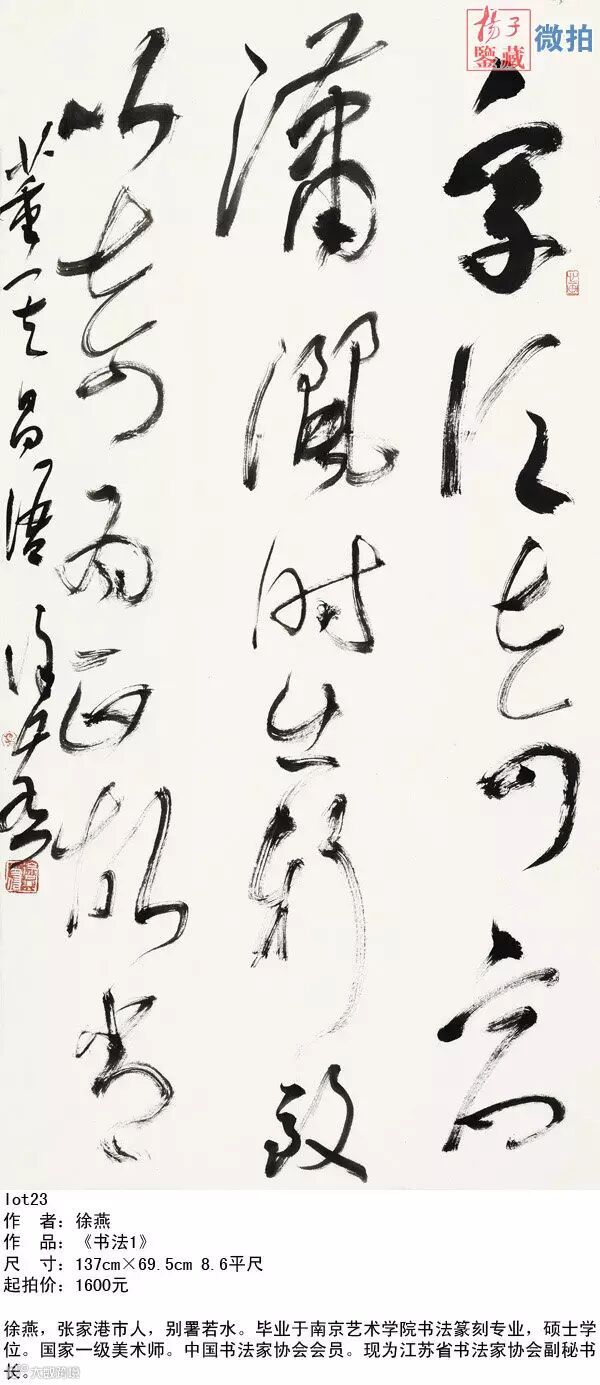 揚子
鑒藏
微拍
字須奇宕
瀟灑時出新致
以奇為正故常
董其昌語 徐燕
lot23
作 者：徐燕
作 品：《书法1》
尺 寸：137cm×69.5cm 8.6平尺
起拍价：1600元
徐燕，张家港市人，别署若水。毕业于南京艺术学院书法篆刻专业，硕士学
位。国家一级美术师。中国书法家协会会员。现为江苏省书法家协会副秘书
长。